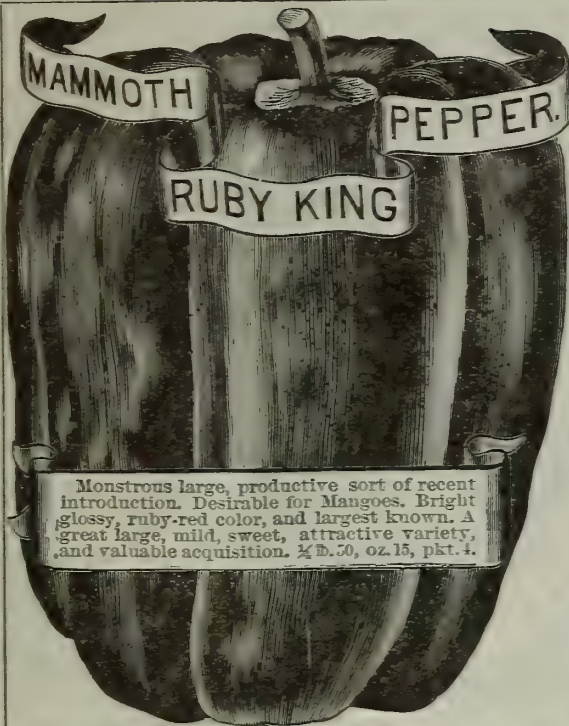 MAMMOTH
PEPPER.
RUBY KING
Monstrous large, productive sort of recent
introduction. Desirable for Mangoes. Bright
glossy, ruby-red color, and largest known. A
great large, mild, sweet, attractive variety,
and valuable acquisition. ¼ lb. 50, oz. 15, pkt. 4.